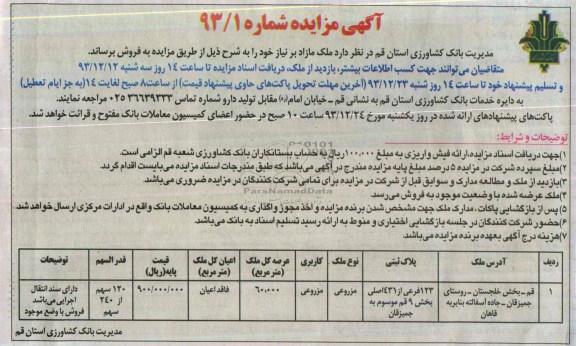 آگهی مزایده شماره ۹۳/۱
مدیریت بانک کشاورزی استان قم در نظر دارد ملک مازاد بر نیاز خود را به شرح ذیل از طریق مزایده به فروش برساند.
متقاضیان می‌توانند جهت کسب اطلاعات بیشتر، بازدید از ملک، دریافت اسناد مزایده تا ساعت ۱۴ روز سه شنبه ۹۳/۱۲/۱۲
و تسلیم پیشنهاد خود تا ساعت ۱۴ روز شنبه ۹۳/۱۲/۲۳ (آخرین مهلت تحویل پاکت‌های حاوی پیشنهاد قیمت) از ساعت ۸ صبح لغایت ۱۴ (به جز ایام تعطیل)
به دایره خدمات بانک کشاورزی استان قم به نشانی قم ـ خیابان امام (ره) مقابل تولید دارو شماره تماس ۳۶۶۳۹۳۳۳ ۰۲۵ مراجعه نمایند.
پاکت‌های پیشنهادهای ارائه شده در روز یکشنبه مورخ ۹۳/۱۲/۲۴ ساعت ۱۰ صبح در حضور اعضای کمیسیون معاملات بانک مفتوح و قرائت خواهد شد.
توضیحات و شرایط:
۱)جهت دریافت اسناد مزایده، ارائه فیش واریزی به مبلغ ۱۰۰,۰۰۰ ریال به حساب بستانکاران بانک کشاورزی شعبه قم الزامی است.
۲)مبلغ سپرده شرکت در مزایده ۵ درصد مبلغ پایه مزایده مندرج در آگهی می‌باشد که طبق مندرجات اسناد مزایده می‌بایست اقدام گردد.
۳)بازدید از ملک و مطالعه مدارک و سوابق قبل از شرکت در مزایده برای تمامی شرکت کنندگان در مزایده ضروری می‌باشد.
۴)ملک عرضه شده با وضعیت موجود به فروش می‌رسد.
۵) پس از بازگشایی پاکات ، مدارک ملک جهت مشخص شدن برنده مزایده و اخذ مجوز واگذاری به کمیسیون معاملات بانک واقع در ادارات مرکزی ارسال خواهد شد.
۶)حضور شرکت کنندگان در جلسه بازگشایی اختیاری و منوط به ارائه رسید تسلیم اسناد به بانک می‌باشد.
۷)هزینه درج آگهی بعهده برنده مزایده می‌باشد.
ردیف آدرس ملک پلاک ثبتی نوع ملک کاربری عرصه کل ملک (متر مربع) اعیان کل ملک (متر مربع) قیمت پایه(ریال) قدر السهم توضیحات
۱ قم ـ بخش خلجستان ـ روستای جمیزقان ـ جاده آسفالته بنابر به قاهان ۱۲۳ فرعی از ۴۳۱ اصلی بخش ۹ قم موسوم به جمیزقان مزروعی مزروعی ۶۰,۰۰۰ فاقد اعیان ۹۰۰/۰۰۰/۰۰۰ ۱۲۰ سهم از ۲۴۰ سهم دارای سند انتقال اجرایی می‌باشد فروش با وضع موجود
مدیریت بانک کشاورزی استان قم
ParsNamadData